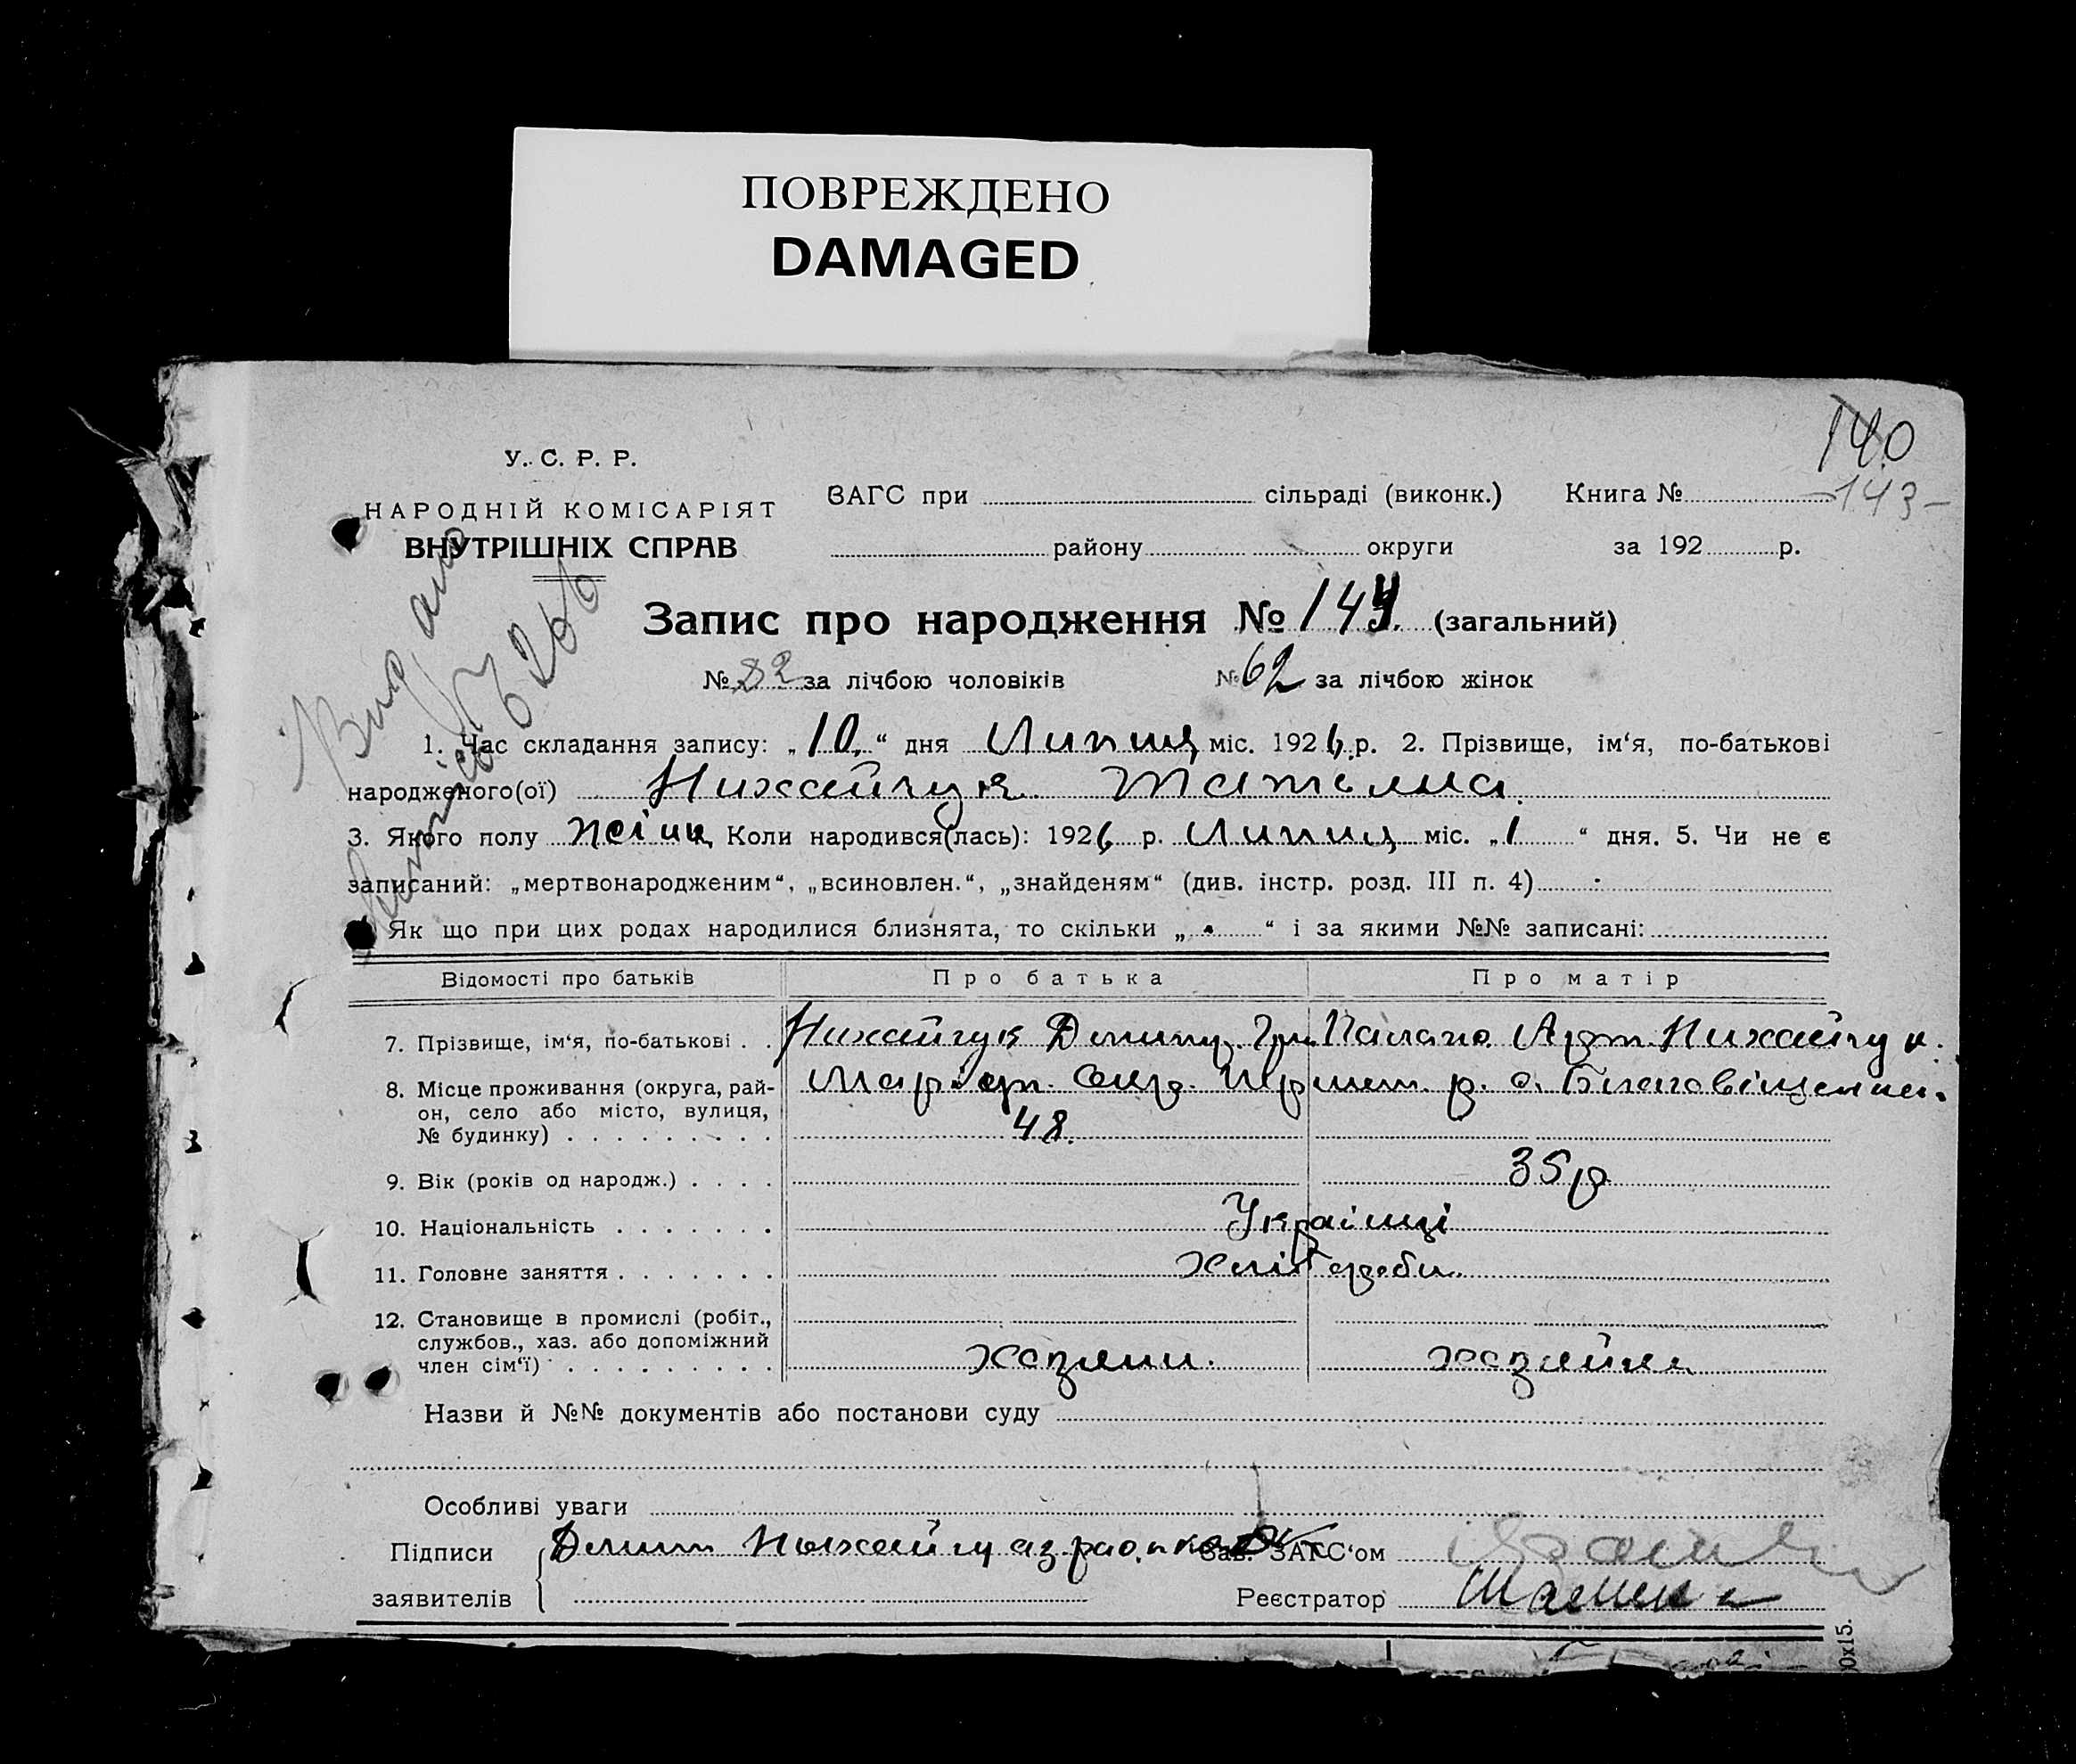 ПОВРЕЖДЕНО
DAMAGED
140
-143-
У. С. Р. Р.
НАРОДНІЙ КОМІСАРІЯТ
ВНУТРІШНІХ СПРАВ
ЗАГС при сільраді (виконк.) Книга №
району округи за 192 р.
Запис про народження № 144 (загальний)
№ 82 за лічбою чоловіків № 62 за лічбою жінок
1. Час складання запису: „10.“ дня Липня міс. 1926 р. 2. Прізвище, ім‘я, по-батькові
народженого(ої) Нихайчук Татьяна.
3. Якого полу жіно Коли народився(лась): 1926 р. Липня міс. „1“ дня. 5. Чи не є
записаний: „мертвонародженим“, „всиновлен.“, „знайденям“ (див. інстр. розд. III п. 4)
Як що при цих родах народилися близнята, то скільки „ “ і за якими №№ записані:
Відомості про батьків Про батька Про матір
7. Прізвище, ім‘я, по-батькові Нихайчук Дмитр. Гри. Палаг. Арт. Нихайчук.
8. Місце проживання (округа, рай- р. с. Благовіщенка.
он, село або місто, вулиця,
№ будинку) 48.
9. Вік (років од народж.) 35 р
10. Національність Українці
11. Головне заняття Хлібороби.
12. Становище в промислі (робіт.,
службов., хаз. або допоміжний
член сім‘ї) хазяин. хазяйка
Назви й №№ документів або постанови суду
Особливі уваги
Підписи Дмит Нихайчу Зав. ЗАГС‘ом
заявителів Реєстратор
0x15.
Видано